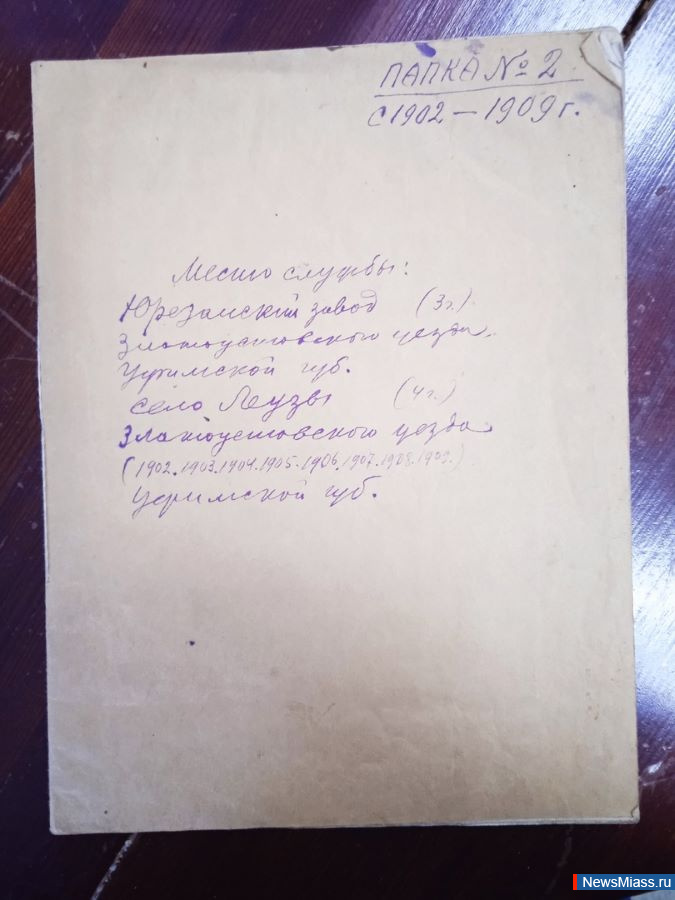 ПАПКА № 2
с 1902 — 1909 г.
Место службы:
Юрезанский завод (3 г.)
Златоустовского уезда
Уфимской губ.
село Леузы (4 г.)
Златоустовского уезда
(1902.1903.1904.1905.1906.1907.1908.1909.)
Уфимской губ.
NewsMiass.ru